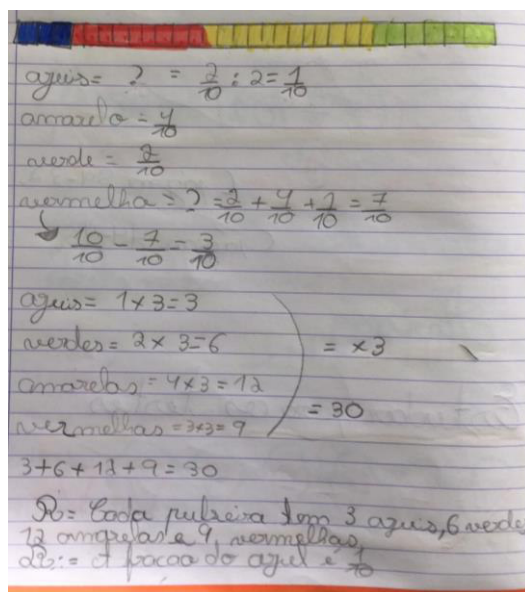 azuis = ? = 2/10 : 2 = 1/10
amarelo = 4/10
verde = 2/10
vermelha = ? = 2/10 + 4/10 + 1/10 = 7/10
10/10 - 7/10 = 3/10
azuis = 1 x 3 = 3
verdes = 2 x 3 = 6
= x3
amarelas = 4 x 3 = 12
= 30
vermelhas = 3x3 = 9
3+6+12+9 = 30
R = Cada pulseira tem 3 azuis, 6 verde
12 amarelas e 9, vermelhas
R: = A fracao do azul é 1/10